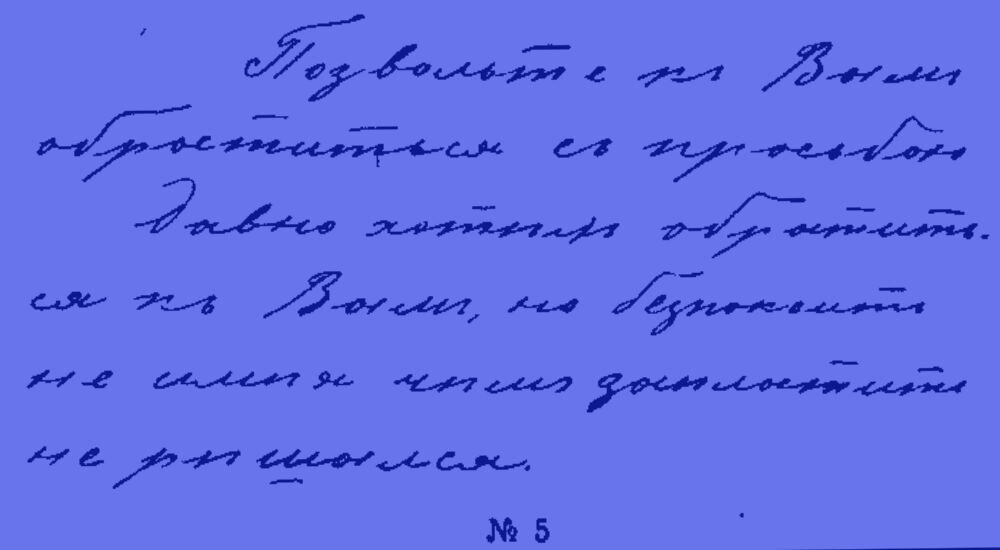 Позвольте къ Вамъ
обратиться съ просьбою
давно хотѣлъ обратить-
ся къ Вамъ, но безпокоить
не имѣя чѣмъ заплатить
не рѣшался.
№ 5